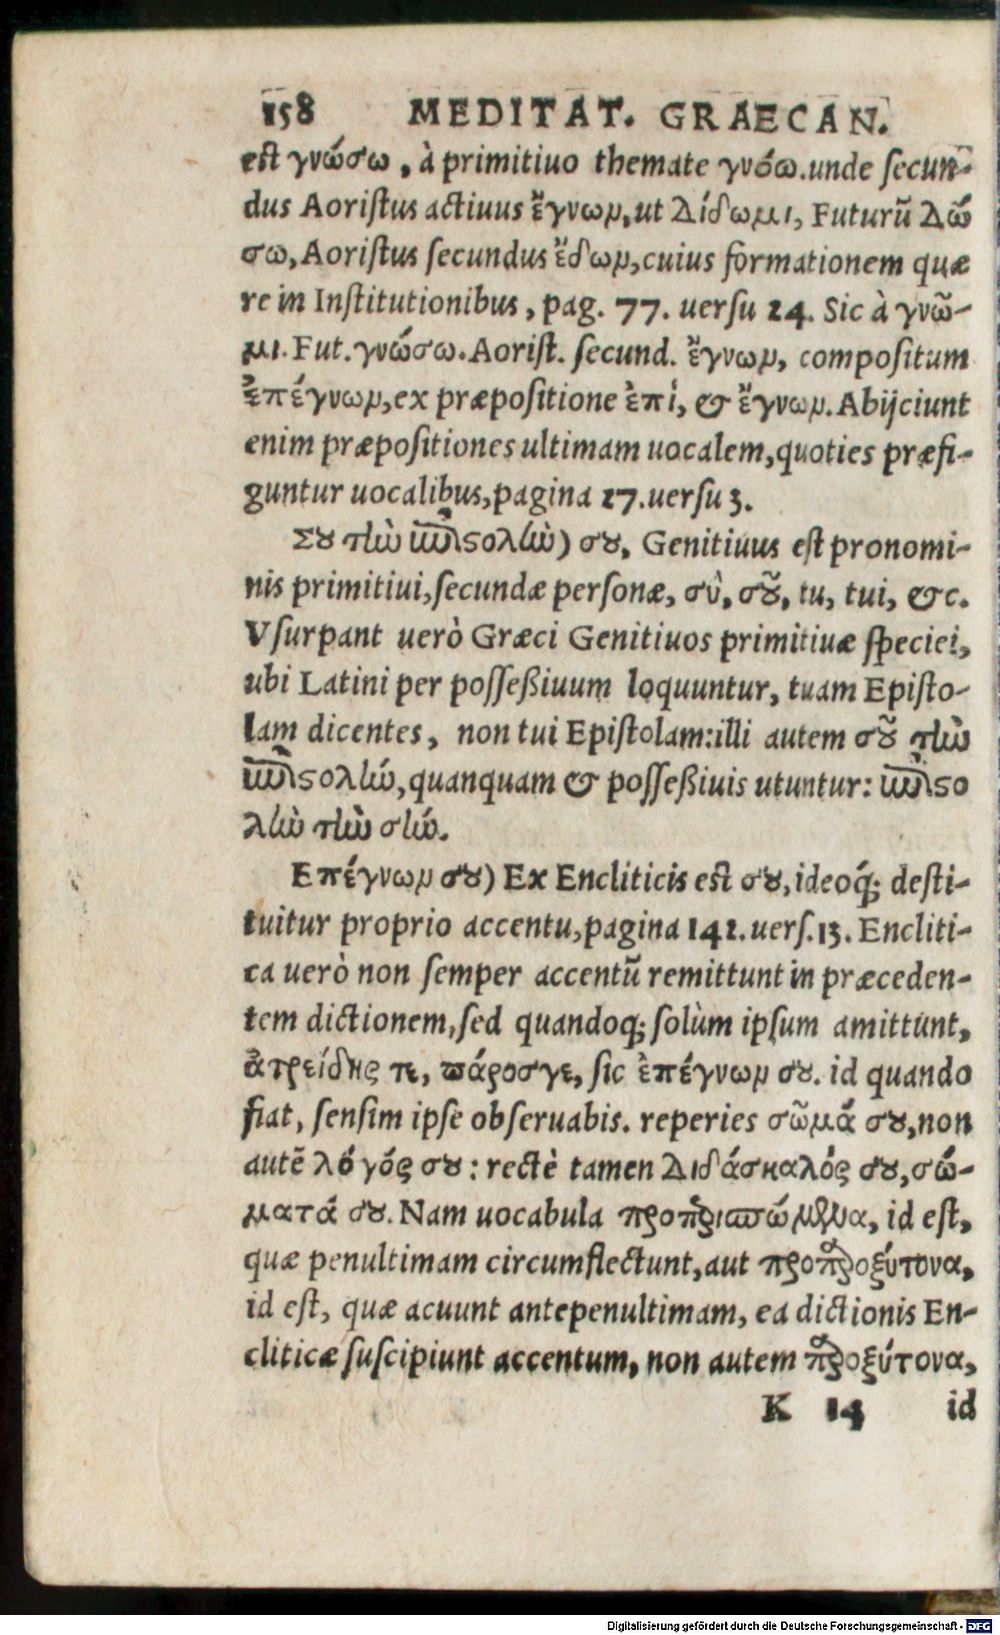 158 MEDITAT. GRAECAN.
est γνώσω, à primitiuo themate γνόω. unde secun-
dus Aoristus actiuus ἔγνων, ut Δίδωμι, Futurũ Δώ
σω, Aoristus secundus ἔδων, cuius formationem quæ
re in Institutionibus, pag. 77. uersu 24. Sic à γνῶ-
μι. Fut. γνώσω. Aorist. secund. ἔγνων, compositum
ἐπέγνων, ex præpositione ἐπὶ, & ἔγνων. Abijciunt
enim præpositiones ultimam uocalem, quoties præfi-
guntur uocalibus, pagina 27. uersu 3.
Σȣ τὴν ἐπιϛολὴν) σȣ, Genitiuus est pronomi-
nis primitiui, secundæ personæ, σὺ, σȣ͂, tu, tui, &c.
Vsurpant uerò Græci Genitiuos primitiuæ speciei,
ubi Latini per possessiuum loquuntur, tuam Episto-
lam dicentes, non tui Epistolam: illi autem σȣ͂ τὴν
ἐπιϛολήν, quanquam & possessiuis utuntur: ἐπιϛο
λὴν τὴν σήν.
Επέγνων σȣ) Ex Encliticis est σȣ, ideoq́; desti-
tuitur proprio accentu, pagina 141. uers. 13. Encliti-
ca uerò non semper accentũ remittunt in præceden-
tem dictionem, sed quandoq; solùm ipsum amittunt,
ἀτρείδης τε, πάροσγε, sic ἐπέγνων σȣ. id quando
fiat, sensim ipse obseruabis. reperies σῶμά σȣ, non
autẽ λόγός σȣ: rectè tamen Διδάσκαλός σȣ, σώ-
ματά σȣ. Nam uocabula προπερισπώμενα, id est,
quæ penultimam circumflectunt, aut προπαροξύτονα,
id est, quæ acuunt antepenultimam, ea dictionis En-
cliticæ suscipiunt accentum, non autem παροξύτονα,
K 14 id
Digitalisierung gefördert durch die Deutsche Forschungsgemeinschaft - DFG